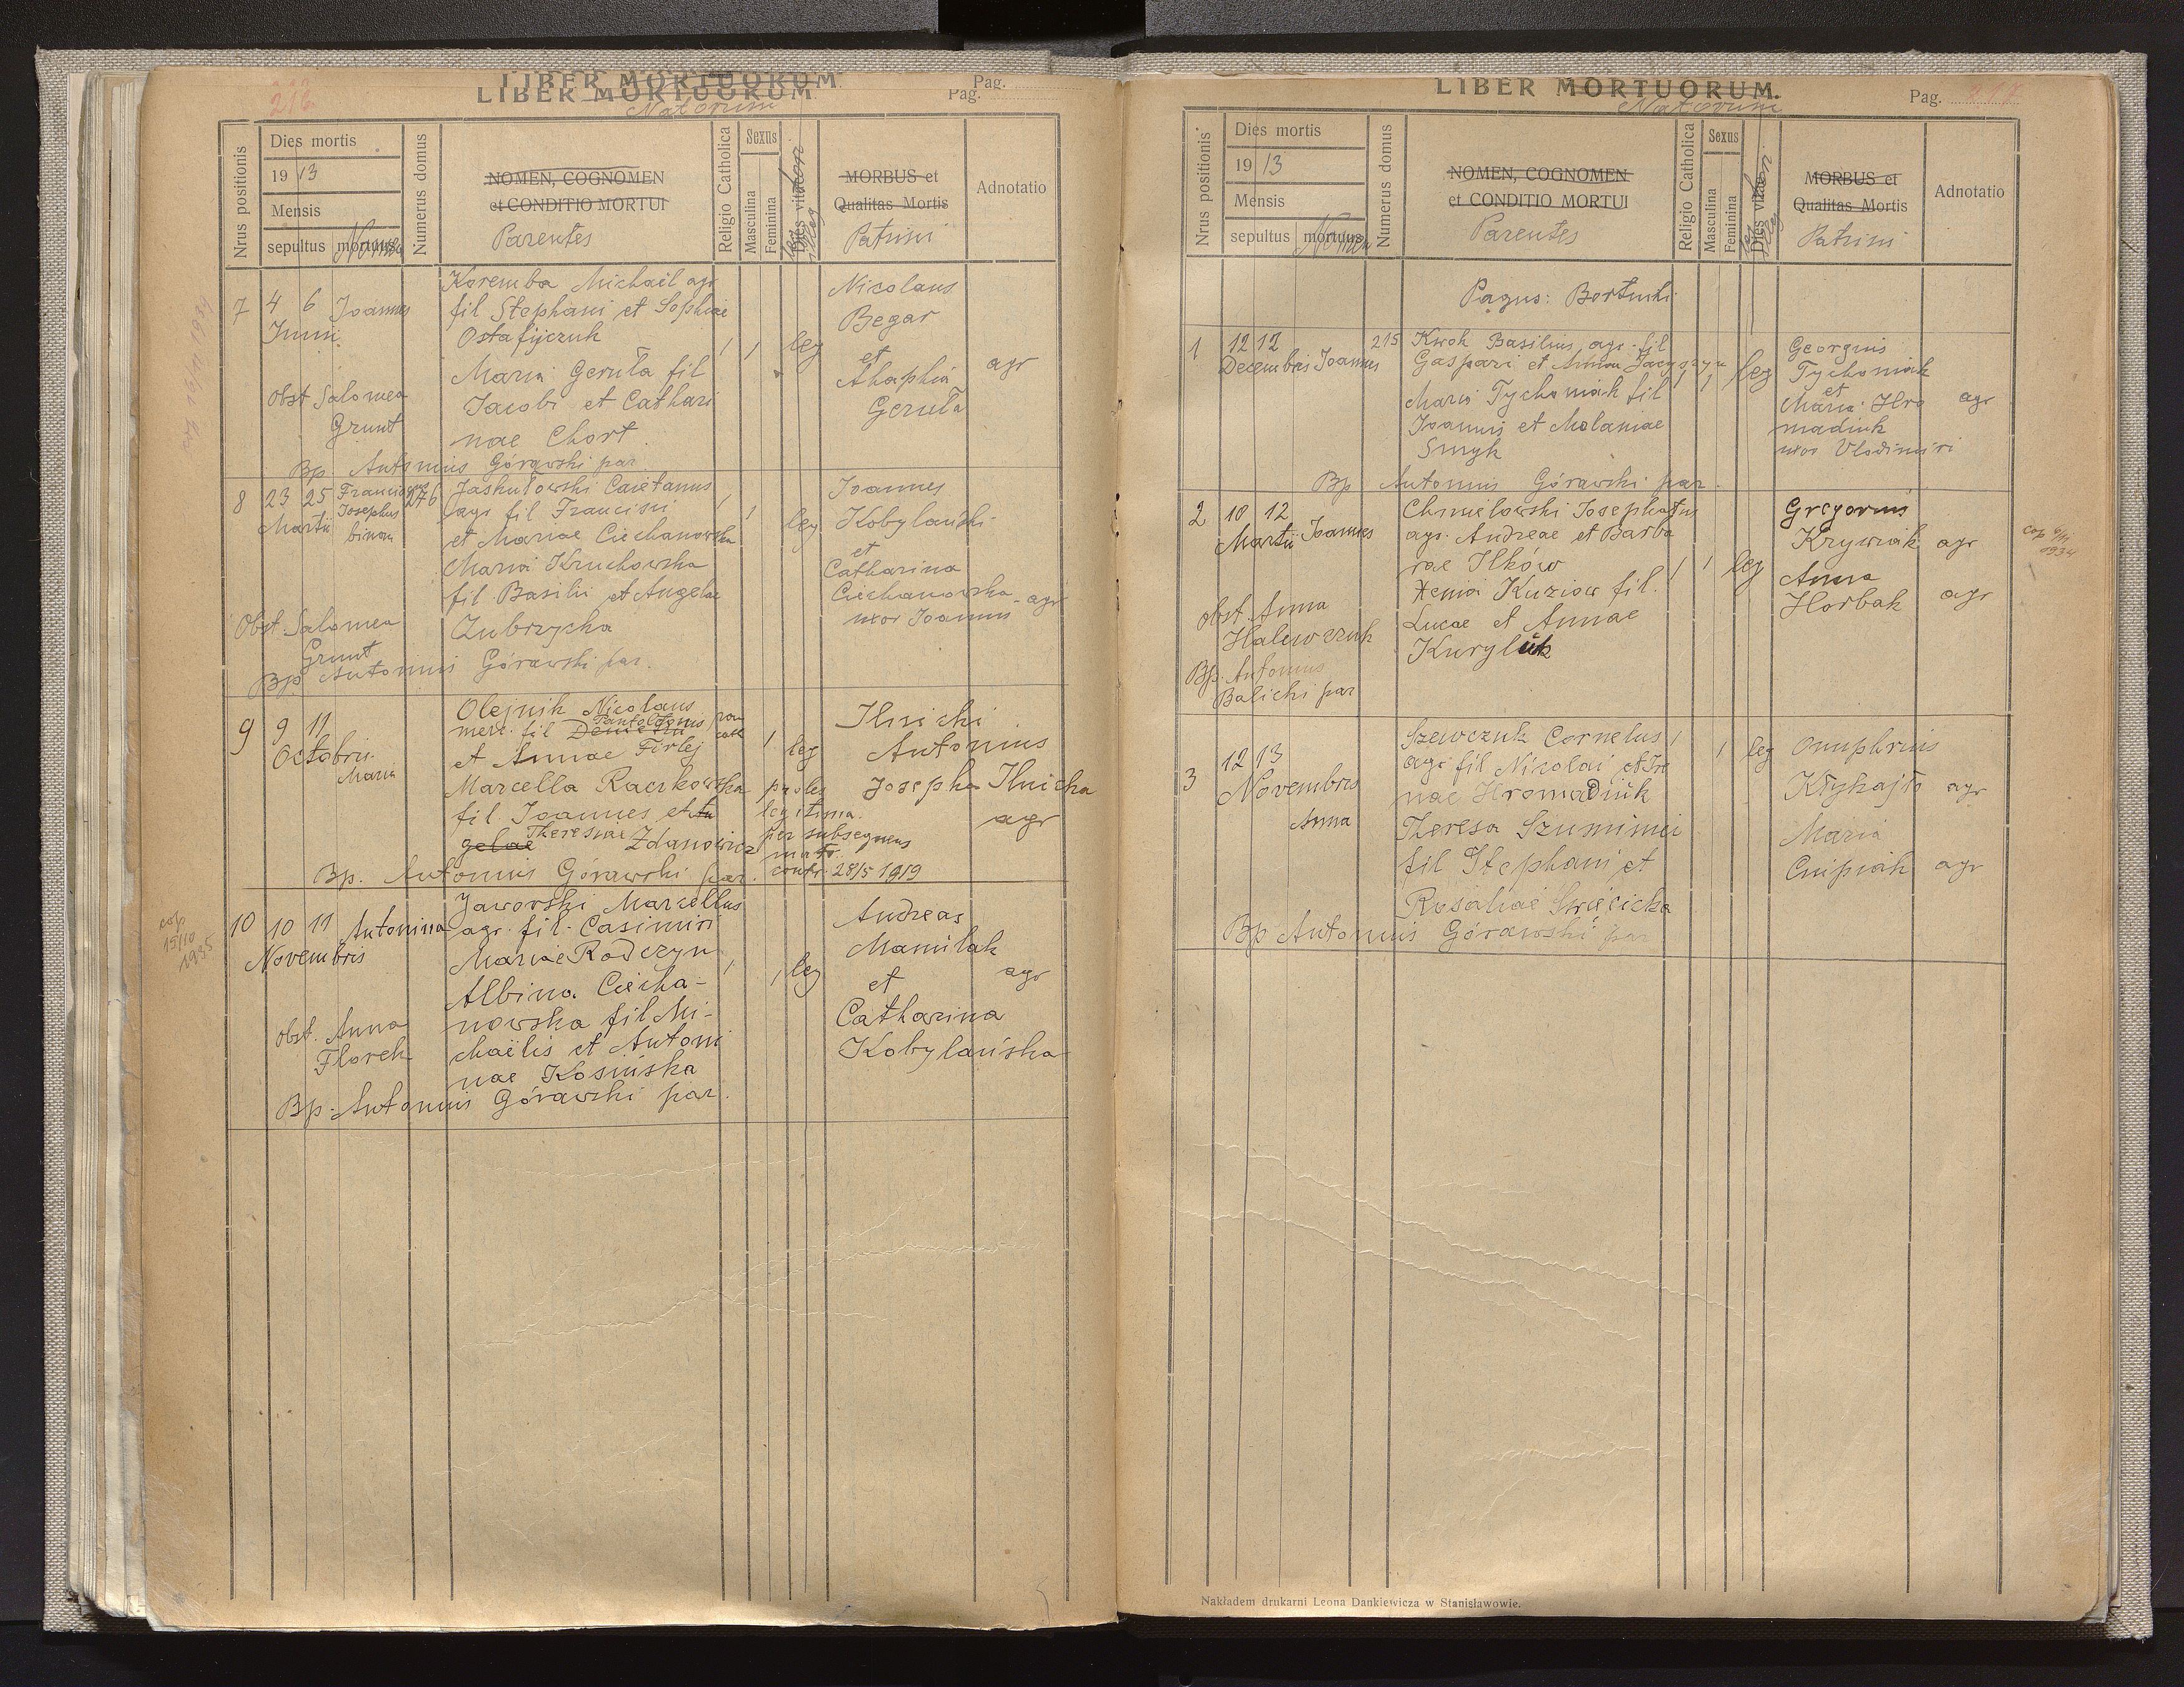 LIBER MORTUORUM.
Pag.
LIBER MORTUORUM.
Pag.
216
Natorum
Nrus positionis
Dies mortis
1913
Mensis
sepultus mortuus
Nomen
Numerus domus
NOMEN, COGNOMEN
et CONDITIO MORTUI
Parentes
Religio Catholica
Sexus
Masculina
Feminina
Dies vitae
MORBUS et
Qualitas Mortis
Patrini
Adnotatio
7 4 6 Joannes
Junii
Koremba Michaël agr
fil Stephani et Sophiae
Ostafijczuk
Maria Geruła fil
Jacobi et Cathari
nae Chort.
1 1 leg
Nicolaus
Begar
et
Ahaphia
Geruła
agr
obst Salomea
Grunt
Bp. Antonius Górawski par.
8 23 25 Franciscus 276
Josephus
Martii binom
Jaskułowski Caietanus
agr fil Francisci
et Mariae Ciechanowska
Maria Kruchowska
fil. Basilii et Angelae
Zubrzycka
1 1 leg
Joannes
Kobylański
et
Catharina
Ciechanowska agr
uxor Joannis
Obst. Salomea
Grunt
Bp Antonius Górawski par.
9 9 11
Octobris
Maria
Olejnik Nicolaus
Pantaleonis
merc. fil Demetrii
et Annae Firlej
Marcella Raczkowska
fil. Joannes et An
gelae Theresiae Zdanowicz
1 leg
proles
legitima
per subsequens
matr.
contr. 28/5 1919
Ilnicki
Antonius
Josepha Ilnicka
agr
Bp. Antonius Górawski par.
cop
15/10
1935
10 10 11 Antonina
Novembris
Jaworski Marcellus
agr. fil. Casimiri
Mariae Rodczyn
Albina Ciecha-
nowska fil Mi-
chaëlis et Antoni
nae Kosińska
1 1 leg
Andreas
Mamilak
et
Catharina
Kobylańska
agr
obst. Anna
Florek
Bp. Antonius Górawski par.
LIBER MORTUORUM.
Natorum
Pag. 217
Nrus positionis
Dies mortis
1913
Mensis
sepultus mortuus
Nomen
Numerus domus
NOMEN, COGNOMEN
et CONDITIO MORTUI
Parentes
Religio Catholica
Sexus
Masculina
Feminina
Dies vitae
MORBUS et
Qualitas Mortis
Patrini
Adnotatio
Pagus: Bortniki
1 12 12 215
Decembris Joannes
Kwok Basilius agr. fil
Gaspari et Annae
Maria Tychoniak fil
Joannis et Malaniae
Smyk
1 1 leg
Georgius
Tychoniak
et
Maria Hro
madiuk
uxor Vlodimiri
agr
Bp Antonius Górawski par.
2 10 12
Martii Joannes
Chmielowski Josephatus
agr. Andreae et Barba
rae Ilków
Xenia Kuziow fil.
Lucae et Annae
Kuryluk
1 1 leg
Gregorius
Krywiak agr
Anna
Horbak agr
obst. Anna
Halewczuk
Bp. Antonius
Balicki par
cop 6/11
1934
3 12 13
Novembris
Anna
Szewczuk Cornelus
agr fil Nicolai et Ire
nae Hromadiuk
Theresa Szumimei
fil Stephani et
Rosaliae Święcicka
1 1 leg
Onuphrius
Kłyhajło agr
Maria
Cnipiak agr
Bp Antonius Górawski par
Nakładem drukarni Leona Dankiewicza w Stanisławowie.